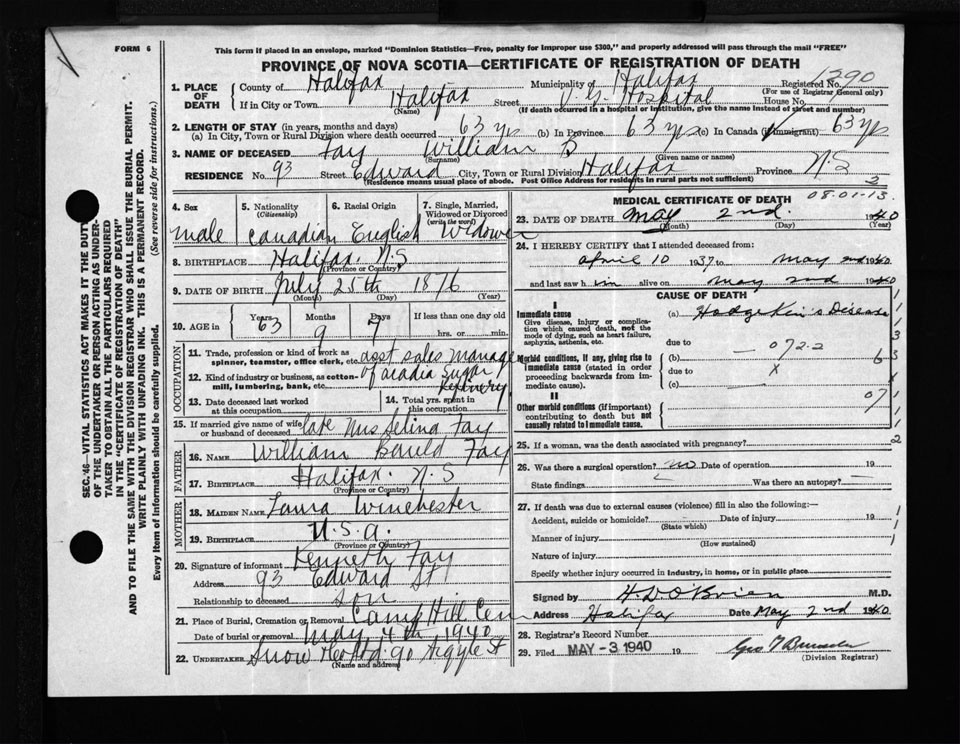 FORM 6
This form if placed in an envelope, marked "Dominion Statistics—Free, penalty for improper use $300," and properly addressed will pass through the mail "FREE"
PROVINCE OF NOVA SCOTIA—CERTIFICATE OF REGISTRATION OF DEATH
SEC. 46—VITAL STATISTICS ACT MAKES IT THE DUTY
OF THE UNDERTAKER OR PERSON ACTING AS UNDER-
TAKER TO OBTAIN ALL THE PARTICULARS REQUIRED
IN THE "CERTIFICATE OF REGISTRATION OF DEATH"
AND TO FILE THE SAME WITH THE DIVISION REGISTRAR WHO SHALL ISSUE THE BURIAL PERMIT.
WRITE PLAINLY WITH UNFADING INK. THIS IS A PERMANENT RECORD.
Every item of Information should be carefully supplied. (See reverse side for instructions.)
1. PLACE OF DEATH County of Halifax Municipality of Halifax Registered No. 1290
(For use of Registrar General only)
If in City or Town Halifax Street V. G. Hospital House No.
(Name) (If death occurred in a hospital or institution, give the name instead of street and number)
2. LENGTH OF STAY (in years, months and days)
(a) In City, Town or Rural Division where death occurred 63 yrs (b) In Province 63 yrs (c) In Canada (if immigrant) 63 yrs
3. NAME OF DECEASED Fay William B
(Surname) (Given name or names)
RESIDENCE No. 93 Street Edward City, Town or Rural Division Halifax Province N.S
(Residence means usual place of abode. Post Office Address for residents in rural parts not sufficient)
2
4. Sex 5. Nationality (Citizenship) 6. Racial Origin 7. Single, Married, Widowed or Divorced (write the word)
male Canadian English Widower
8. BIRTHPLACE Halifax. N.S
(Province or Country)
9. DATE OF BIRTH July 25th 1876
(Month) (Day) (Year)
10. AGE in Years 63 Months 9 Days 7 If less than one day old
hrs. or min.
OCCUPATION
11. Trade, profession or kind of work as spinner, teamster, office clerk, etc. asst sales manager
12. Kind of industry or business, as cotton-mill, lumbering, bank, etc. of acadia Sugar Refinery
13. Date deceased last worked at this occupation 14. Total yrs. spent in this occupation
15. If married give name of wife or husband of deceased late Mrs Selina Fay
FATHER
16. NAME William Bauld Fay
17. BIRTHPLACE Halifax. N.S
(Province or Country)
MOTHER
18. MAIDEN NAME Laura Winchester
19. BIRTHPLACE U.S.A.
(Province or Country)
20. Signature of informant Kenneth Fay
Address 93 Edward St
Relationship to deceased Son
21. Place of Burial, Cremation or Removal Camp Hill Cem
Date of burial or removal May 4th 1940
22. UNDERTAKER Snow 90 Argyle St
(Name and address)
MEDICAL CERTIFICATE OF DEATH
08-01-13
23. DATE OF DEATH May 2nd. 1940
(Month) (Day) (Year)
24. I HEREBY CERTIFY that I attended deceased from:
April 10 1937 to May 2nd 1940
and last saw him alive on May 2nd 1940
CAUSE OF DEATH
I
Immediate cause (a) Hodgekin's Disease
Give disease, injury or complication which caused death, not the mode of dying, such as heart failure, asphyxia, asthenia, etc.
due to
072-2
Morbid conditions, if any, giving rise to immediate cause (stated in order proceeding backwards from immediate cause). (b)
due to x
(c)
II
Other morbid conditions (if important) contributing to death but not causally related to immediate cause.
07
25. If a woman, was the death associated with pregnancy?
26. Was there a surgical operation? no Date of operation 19
State findings Was there an autopsy?
27. If death was due to external causes (violence) fill in also the following:—
Accident, suicide or homicide? Date of injury 19
(State which)
Manner of injury
(How sustained)
Nature of injury
Specify whether injury occurred in industry, in home, or in public place
Signed by H D O'Brien M.D.
Address Halifax Date May 2nd 1940
28. Registrar's Record Number
29. Filed MAY -3 1940 19 Geo
(Division Registrar)